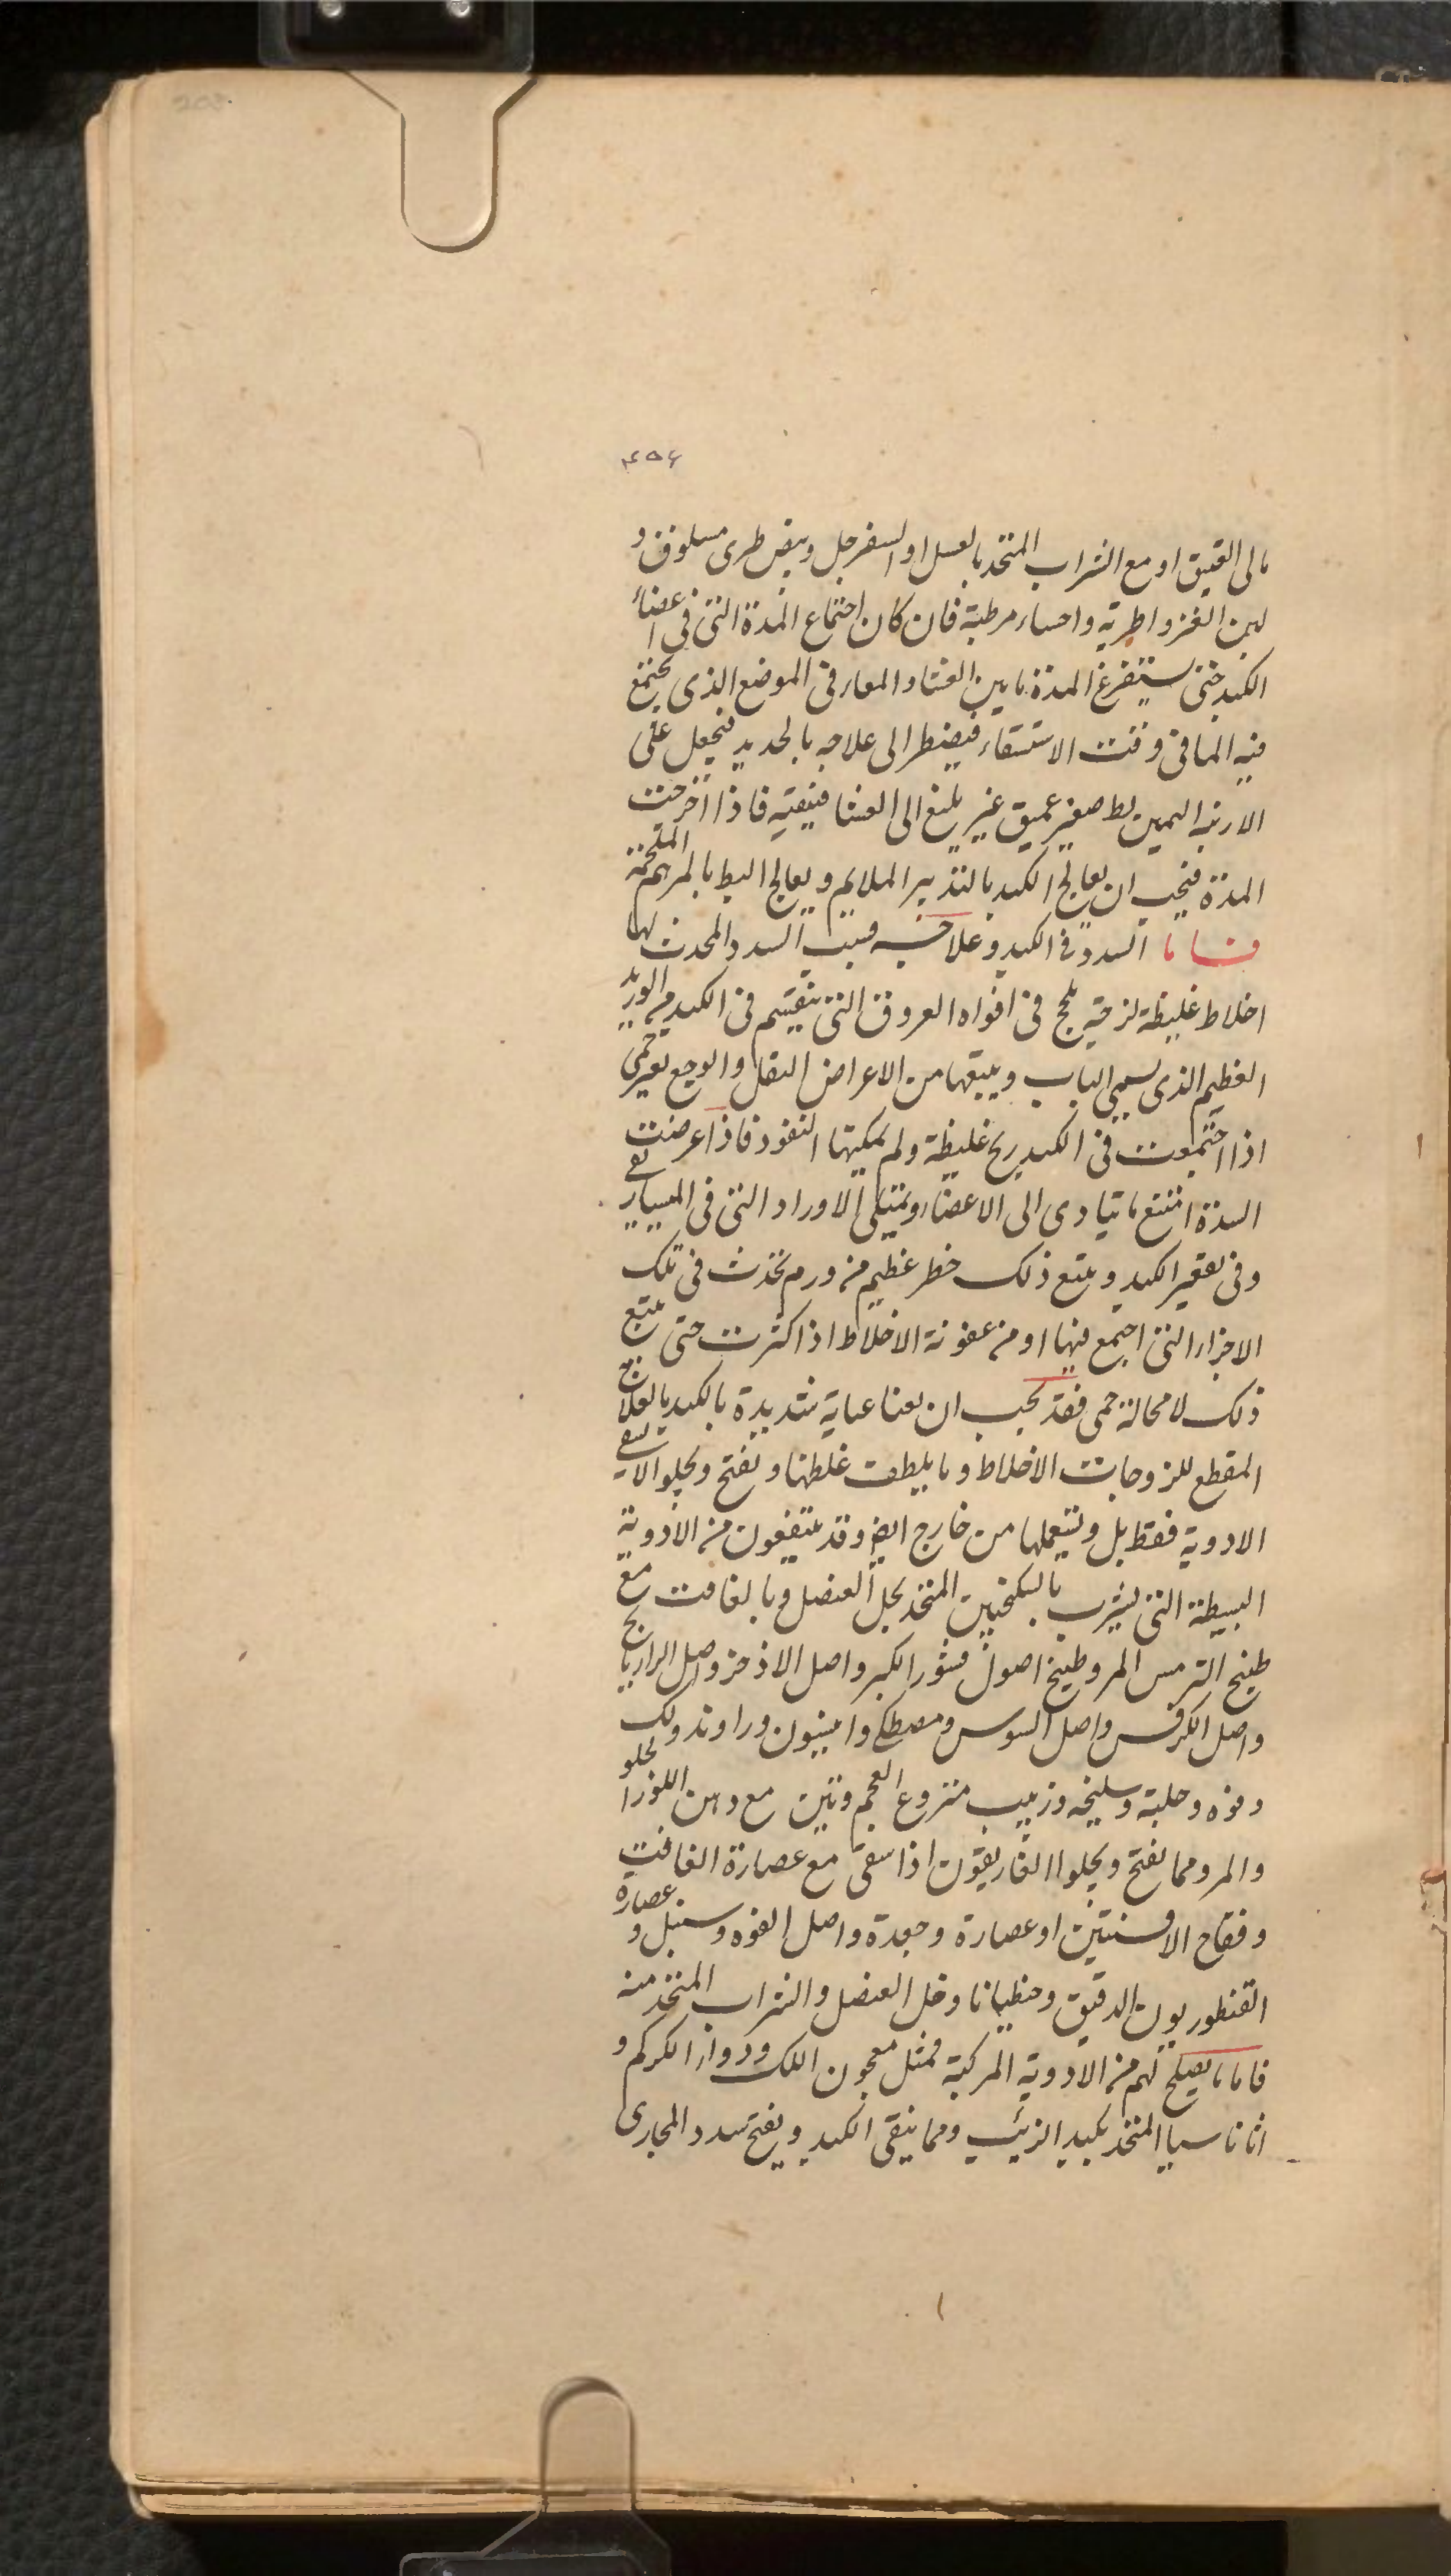 208
٤٥٤
مالى القيق او مع الشراب المتخذ بالعسل او السفرجل وبيض طرى مسلوق و
لبن الغز واطرية واحساء مرطبة فان كان اجتماع المدة التى فى اعضاء
الكبد حتى يستفرغ المدة ما بين الغشا والمعا وفى الموضع الذى يجتمع
فيه الما فى وقت الاستسقاء فيضطر الى علاجه بالحديد فيجعل على
الاربية اليمين بط صغير عميق غير يبلغ الى الغشا فينقيه فاذا اخرجت
المدة فيجب ان يعالج الكبد بالتدبير الملايم ويعالج البط بالمرهم الملحمة
السدد فى الكبد وعلاجه فسبب السدد المحدث لها
اخلاط غليظة لزجة يلحج فى افواه العروق التى ينقسم فى الكبد من الوريد
العظيم الذى يسمى الباب ويتبعها من الاعراض الثقل والوجع بغير حمى
اذا اجتمعت فى الكبد ريح غليظة ولم يمكنها النفوذ فاذا عرضت
السدة امتنع ما يتادى الى الاعضاء ويمتلى الاوراد التى فى المساريقى
وفى تقعير الكبد ويتبع ذلك خطر عظيم من ورم يحدث فى تلك
الاجزاء التى اجتمع فيها او من عفونة الاخلاط اذا كثرت حتى يتبع
ذلك لا محالة حمى فقد يجب ان يعنا عناية شديدة بالكبد بالعلاج
المقطع للزوجات الاخلاط وما يلطف غلظها ويفتح ويجلو الا يسقى
الادوية فقط بل ويستعملها من خارج ايض وقد ينتفعون من الادوية
البسيطة التى يشرب بالسكنجبين المتخذ بخل العنصل وبالغافت مع
طبيخ الترمس المر وطبيخ اصول قشور الكبر واصل الاذخر واصل الرازيانج
واصل الكرفس واصل السوس ومصطكى وانيسون وراوند ولك
وفوه وحلبة وسليخه وزبيب منزوع العجم وتين مع دهن اللوز الحلو
والمر ومما يفتح ويجلوا الغاريقون اذا سقى مع عصارة الغافت
وفقاح الافسنتين او عصارة وجعدة واصل الفوه وسنبل و عصارة
القنطوريون الدقيق وجنطيانا وخل العنصل والشراب المتخذ منه
فاما ما يصلح لهم من الادوية المركبة فمثل معجون اللك ودواء الكركم و
اثاناسيا المتخذ بكبد الذئب ومما ينقى الكبد ويفتح سدد المجارى